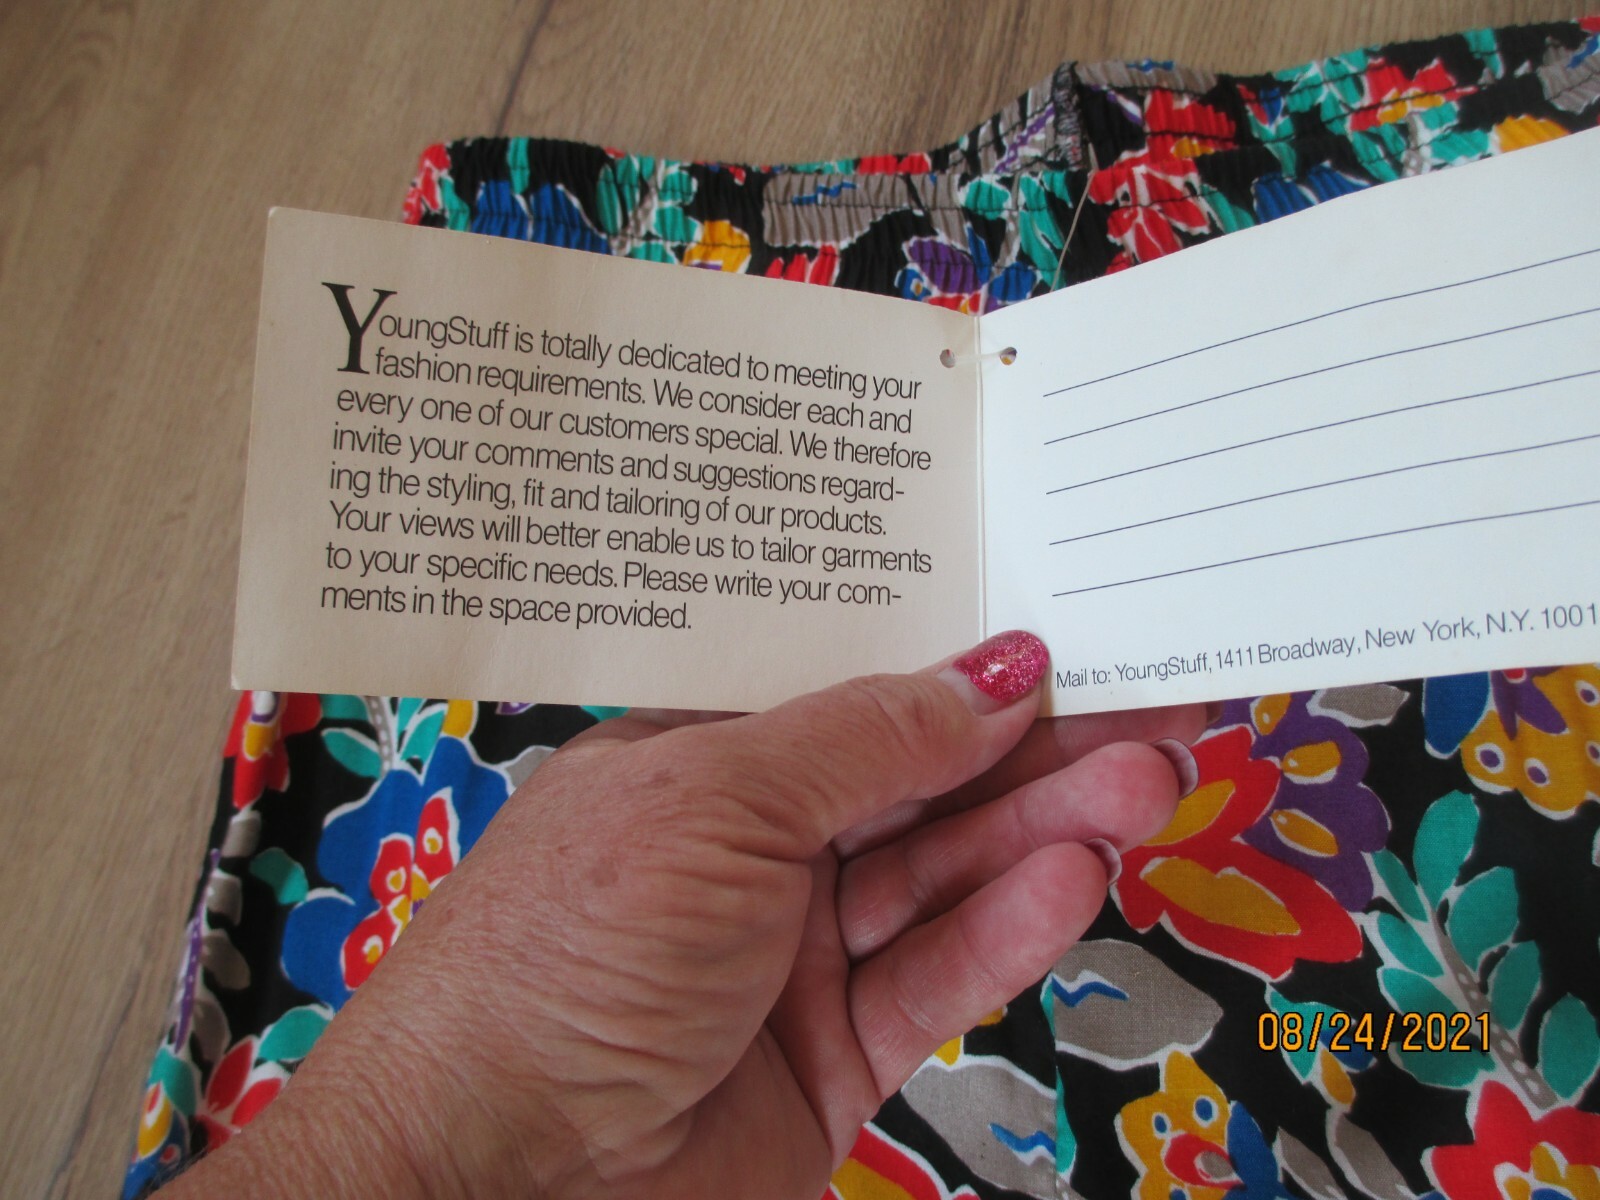 YoungStuff is totally dedicated to meeting your
fashion requirements. We consider each and
every one of our customers special. We therefore
invite your comments and suggestions regard-
ing the styling, fit and tailoring of our products.
Your views will better enable us to tailor garments
to your specific needs. Please write your com-
ments in the space provided.
Mail to: YoungStuff, 1411 Broadway, New York, N.Y. 1001
08/24/2021